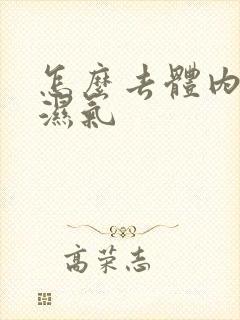 怎麼去體內
濕氣
高荣志